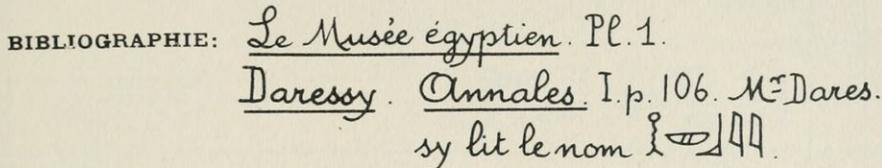 BIBLIOGRAPHIE: Le Musée égyptien. Pl. 1.
Daressy. Annales. I. p. 106. Mr Dares.
sy lit le nom